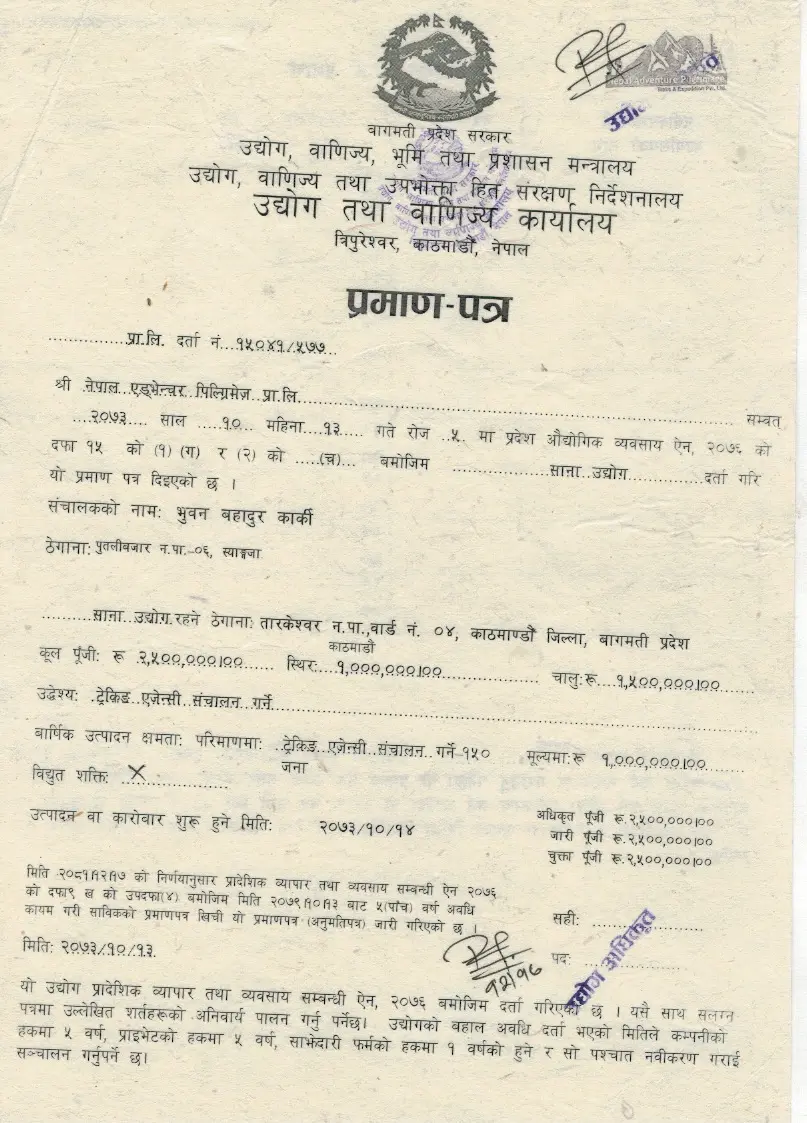 Nepal Adventure Pilgrimage
Treks & Expedition Pvt. Ltd.
बागमती प्रदेश सरकार
उद्योग, वाणिज्य, भूमि तथा प्रशासन मन्त्रालय
उद्योग, वाणिज्य तथा उपभोक्ता हित संरक्षण निर्देशनालय
उद्योग तथा वाणिज्य कार्यालय
त्रिपुरेश्वर, काठमाडौं, नेपाल
प्रमाण-पत्र
................प्रा.लि. दर्ता नं...१५०४१/५७७...
श्री नेपाल एड्भेन्चर पिल्ग्रिमेज प्रा.लि............................ सम्वत्
...२०७३... साल ...१०... महिना...१३... गते रोज ..५.. मा प्रदेश औद्योगिक व्यवसाय ऐन, २०७६ को
दफा १५ को (१) (ग) र (२) को ....(च)... बमोजिम ................साना उद्योग............दर्ता गरि
यो प्रमाण पत्र दिइएको छ ।
संचालकको नाम: भुवन बहादुर कार्की
ठेगाना: पुतलीबजार न.पा.-०६, स्याङ्गजा
.........साना उद्योग रहने ठेगाना: तारकेश्वर न.पा.,वार्ड नं. ०४, काठमाण्डौं जिल्ला, बागमती प्रदेश
काठमाडौं
कूल पूंजी: रू २,५००,०००।०० ...... स्थिर: १,०००,०००।०० ............ चालु:रू....१,५००,०००।००
उद्धेश्य: .ट्रेकिङ एजेन्सी संचालन गर्ने............................
बार्षिक उत्पादन क्षमता: परिमाणमा: .ट्रेकिङ एजेन्सी संचालन गर्ने १५० मूल्यमा:रू १,०००,०००।००
जना
विद्युत शक्ति: X ................
उत्पादन वा कारोवार शुरू हुने मिति: २०७३/१०/१४
अधिकृत पूंजी रू.२,५००,०००।००
जारी पूंजी रू.२,५००,०००।००
चुक्ता पूंजी रू.२,५००,०००।००
मिति २०८१।१२।१७ को निर्णयानुसार प्रादेशिक व्यापार तथा व्यवसाय सम्बन्धी ऐन २०७६
को दफा९ ख को उपदफा(४) बमोजिम मिति २०७९।१०।१३ बाट ५(पाँच) वर्ष अवधि
कायम गरी साविकको प्रमाणपत्र खिची यो प्रमाणपत्र (अनुमतिपत्र) जारी गरिएको छ ।
सही: ....................
मिति: २०७३/१०/१३
पद: ................
उद्योग अधिकृत
१२/१७
यो उद्योग प्रादेशिक व्यापार तथा व्यवसाय सम्बन्धी ऐन, २०७६ बमोजिम दर्ता गरिएको छ । यसै साथ सलग्न
पत्रमा उल्लेखित शर्तहरूको अनिवार्य पालन गर्नु पर्नेछ। उद्योगको बहाल अवधि दर्ता भएको मितिले कम्पनीको
हकमा ५ वर्ष, प्राइभेटको हकमा ५ वर्ष, साझेदारी फर्मको हकमा १ वर्षको हुने र सो पश्चात नवीकरण गराई
सञ्चालन गर्नुपर्ने छ।